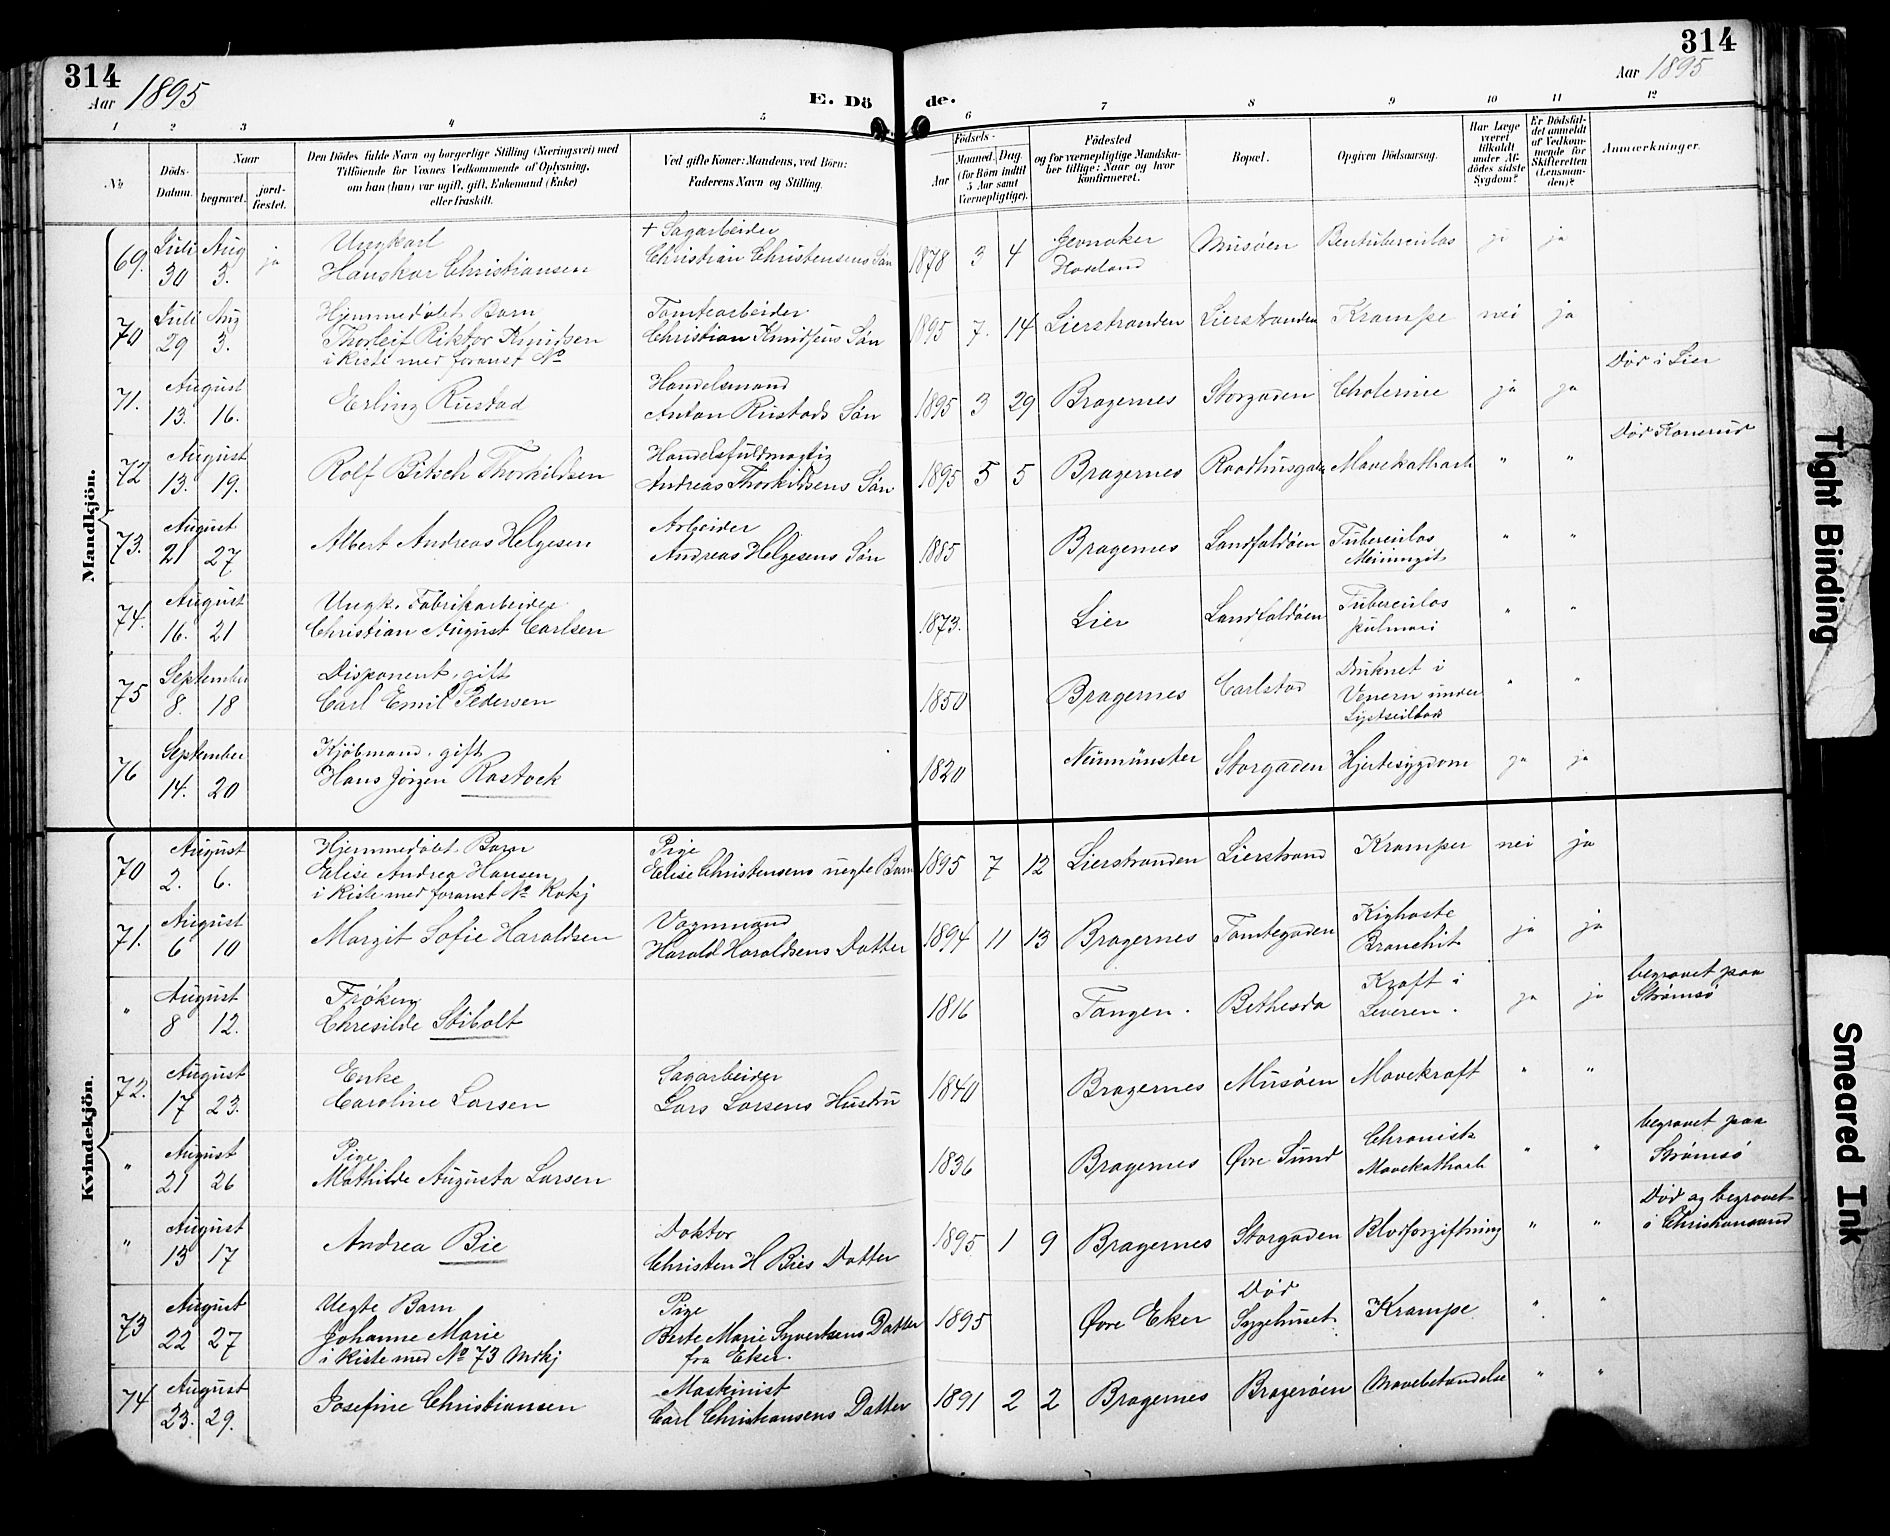 314
Aar 1895
E. Dö
de.
314
Aar 1895
1 2 3 4 5 6 7 8 9 10 11 12
No
Döds-Datum.
Naar
begravet.
jord-fæstet.
Den Dödes fulde Navn og borgerlige Stilling (Næringsvei) med
Tilföiende for Voxnes Vedkommende af Oplysning,
om han (hun) var ugift, gift, Enkemand (Enke)
eller fraskilt.
Ved gifte Koner: Mandens, ved Börn:
Faderens Navn og Stilling.
Födsels-
Aar
Maaned. Dag.
(for Börn indtil
5 Aar samt
Værnepligtige).
Födested
og for værnepligtige Mandska-
ber tillige: Naar og hvor
konfirmeret.
Bopæl.
Opgiven Dödsaarsag.
Har Læge
været
tilkaldt
under Af-
dödes sidste
Sygdom?
Er Dödsfal-
det anmeldt
af Vedkom-
mende for
Skifteretten
(Lensman-
den)?
Anmærkninger.
Mandkjön.
69. Juli 30 Aug 3. ja
Ungkarl
Hanskar Christiansen
+ Sagarbeider
Christian Christensens Søn
1878 3 4
Jevnaker
Hadeland
Musøen
ja ja
70 Juli 29 Aug 3.
Hjemmedøbt Barn
Thorleif Viktor Knudsen
i kiste med foranst No
Tomtearbeider
Christian Knudsens Søn
1895 7. 14 Lierstranden Lierstranden Krampe nei ja
71. August 13. 16.
Erling Rustad
Handelsmand
Anton Rustads Søn
1895 3 29 Bragernes Storgaden Cholerine ja ja
Død i Lier
72 August 13. 19.
Rolf Bitsch Thorkildsen
Handelsfuldmægtig
Andreas Thorkildsens Søn
1895 5 5 Bragernes Raadhusgaden Mavekatharh " "
Død Konerud
73. August 21 27
Albert Andreas Helgesen
Arbeider
Andreas Helgesens Søn
1885 Bragernes Landfaldøen Tuberculos
Meningit " "
74. August 16. 21
Ungk. Fabrikarbeider
Christian August Carlsen
1873. Lier Landfaldøen Tuberculos
pulmon " "
75 September 8. 18
Disponent, gift
Carl Emil Pedersen
1850 Bragernes Carlstad Druknet i
Venern under
Lystseilads " "
76 September 14. 20
Kjøbmand, gift
Hans Jörgen Rostock
1820 Neumünster Storgaden Hjertesygdom ja ja
Kvindekjön.
70 August 2. 6.
Hjemmedøbt Barn
Elise Andrea Hansen
i kiste med foranst No Kvkj
Pige
Elise Christensens uegte Barn
1895 7 12 Lierstranden Lierstrand Kramper nei ja
71. August 6 10
Margit Sofie Haraldsen
Vognmand
Harald Haraldsens Datter
1894 11 13 Bragernes Tomtegaden Kighoste
Bronchit ja ja
" August 8 12.
Frøken
Chresilde Stibolt
1816 Tangen. Bethesda Kræft i
Leveren. ja ja
begravet paa
Strømsø
72. August 17 23.
Enke
Caroline Larsen
Sagarbeider
Lars Larsens Hustru
1840 Bragernes Musøen Mavekræft " "
" August 21 26
Pige
Mathilde Augusta Larsen
1836 Bragernes Øvre Sund Chronisk
Mavekatharh " "
begravet paa
Strømsø
" August 13 17
Andrea Bie
Doktor
Christen H Bies Datter
1895 1 9 Bragernes Storgaden Blodforgiftning " "
Død og begravet
i Christiansand
73 August 22 27
Uegte Barn
Johanne Marie
i kiste med No 73 Mdkj
Pige
Berte Marie Syvertsens Datter
fra Eker.
1895 Øvre Eker Død
Sygehuset. Krampe " "
74 August 23. 29.
Josefine Christiansen
Maskinist
Carl Christiansens Datter
1891 2 2 Bragernes Bragerøen Mavebetændelse " "
Tight Binding
Smeared Ink